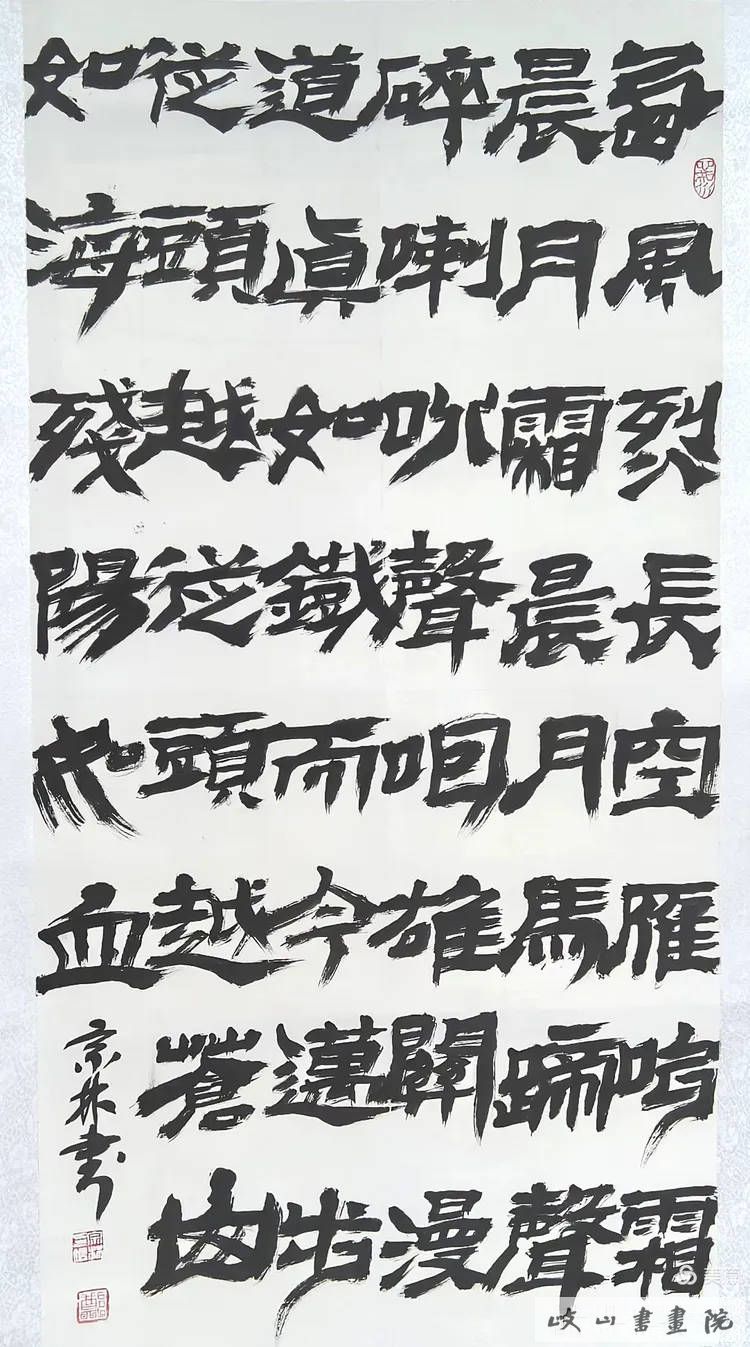 西風烈長空雁叫霜
晨月霜晨月馬蹄聲
碎喇叭聲咽雄關漫
道眞如鐵而今邁步
從頭越從頭越蒼山
如海殘陽如血
京林書
岐山書畫院